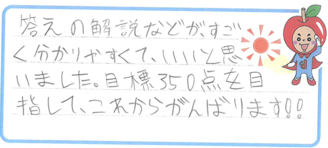 答えの解説などが、すご
く分かりやすくて、いいと思
いました。目標350点を目
指して、これからがんばります!!